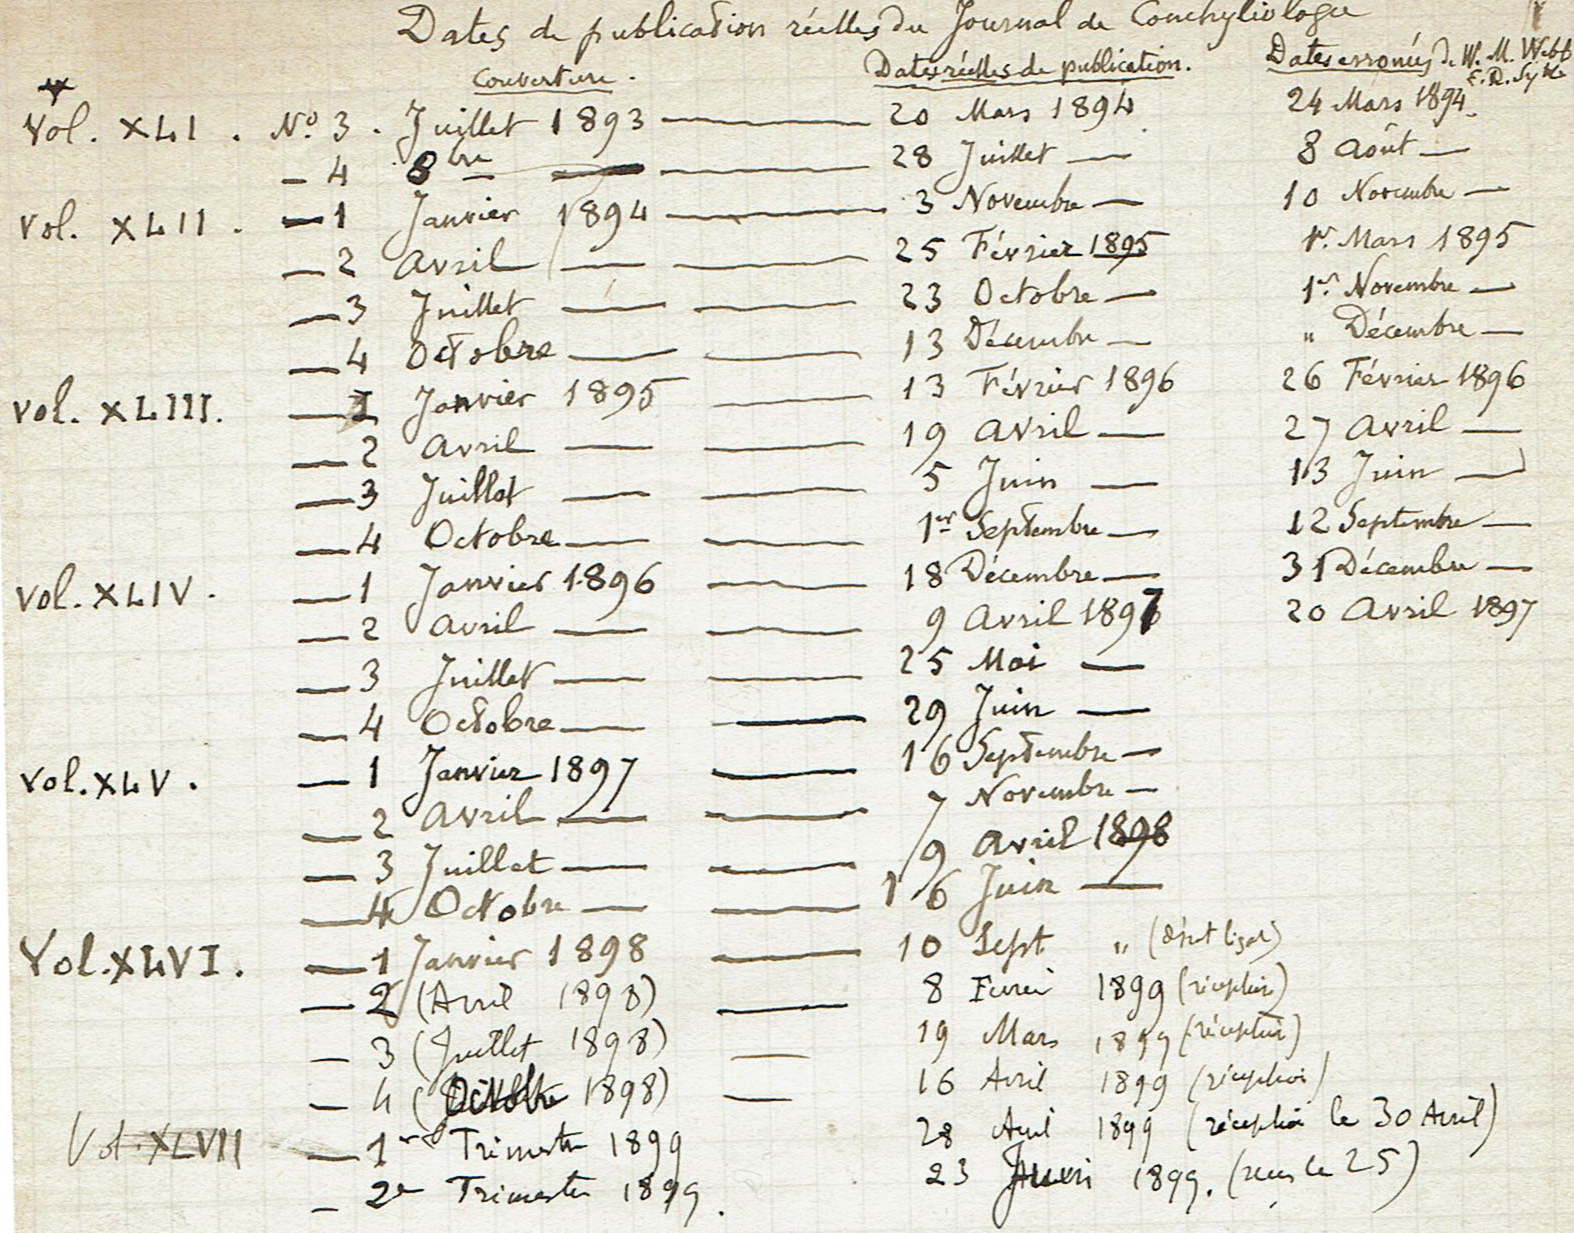 Dates de publication réelles du Journal de Conchyliologie
Couverture. Dates réelles de publication. Dates erronées de W. M. Webb
E. R. Sykes
Vol. XLI. No 3. Juillet 1893 — 20 Mars 1894 24 Mars 1894.
— 4 8bre — — 28 Juillet — 8 Août —
Vol. XLII. — 1 Janvier 1894 — 3 Novembre — 10 Novembre —
— 2 Avril — — 25 Février 1895 1er Mars 1895
— 3 Juillet — — 23 Octobre — 1er Novembre —
— 4 Octobre — — 13 Décembre — " Décembre —
Vol. XLIII. — 1 Janvier 1895 — 13 Février 1896 26 Février 1896
— 2 Avril — — 19 Avril — 27 Avril —
— 3 Juillet — — 5 Juin — 13 Juin —
— 4 Octobre — — 1er Septembre — 12 Septembre —
Vol. XLIV. — 1 Janvier 1896 — 18 Décembre — 31 Décembre —
— 2 Avril — — 9 Avril 1897 20 Avril 1897
— 3 Juillet — — 25 Mai —
— 4 Octobre — — 29 Juin —
Vol. XLV. — 1 Janvier 1897 — 16 Septembre —
— 2 Avril — — 7 Novembre —
— 3 Juillet — — 9 Avril 1898
— 4 Octobre — — 16 Juin —
Vol. XLVI. — 1 Janvier 1898 — 10 Sept " (dépt légal)
— 2 (Avril 1898) — 8 1899 (réception)
— 3 (Juillet 1898) — 19 Mars 1899 (réception)
— 4 (Octobre 1898) — 16 Avril 1899 (réception)
Vol. XLVII — 1er Trimestre 1899 28 Avril 1899 (réception le 30 Avril)
— 2e Trimestre 1899. 23 1899. (reçu le 25)